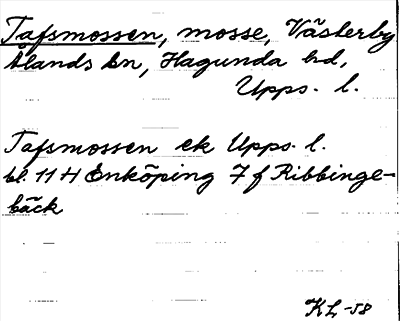 Tafsmossen, mosse, Västerby
Ålands sn, Hagunda hd,
Upps. l.
Tafsmossen ek Upps. l.
bl. 11 H Enköping 7 f Ribbinge-
bäck
KL-58